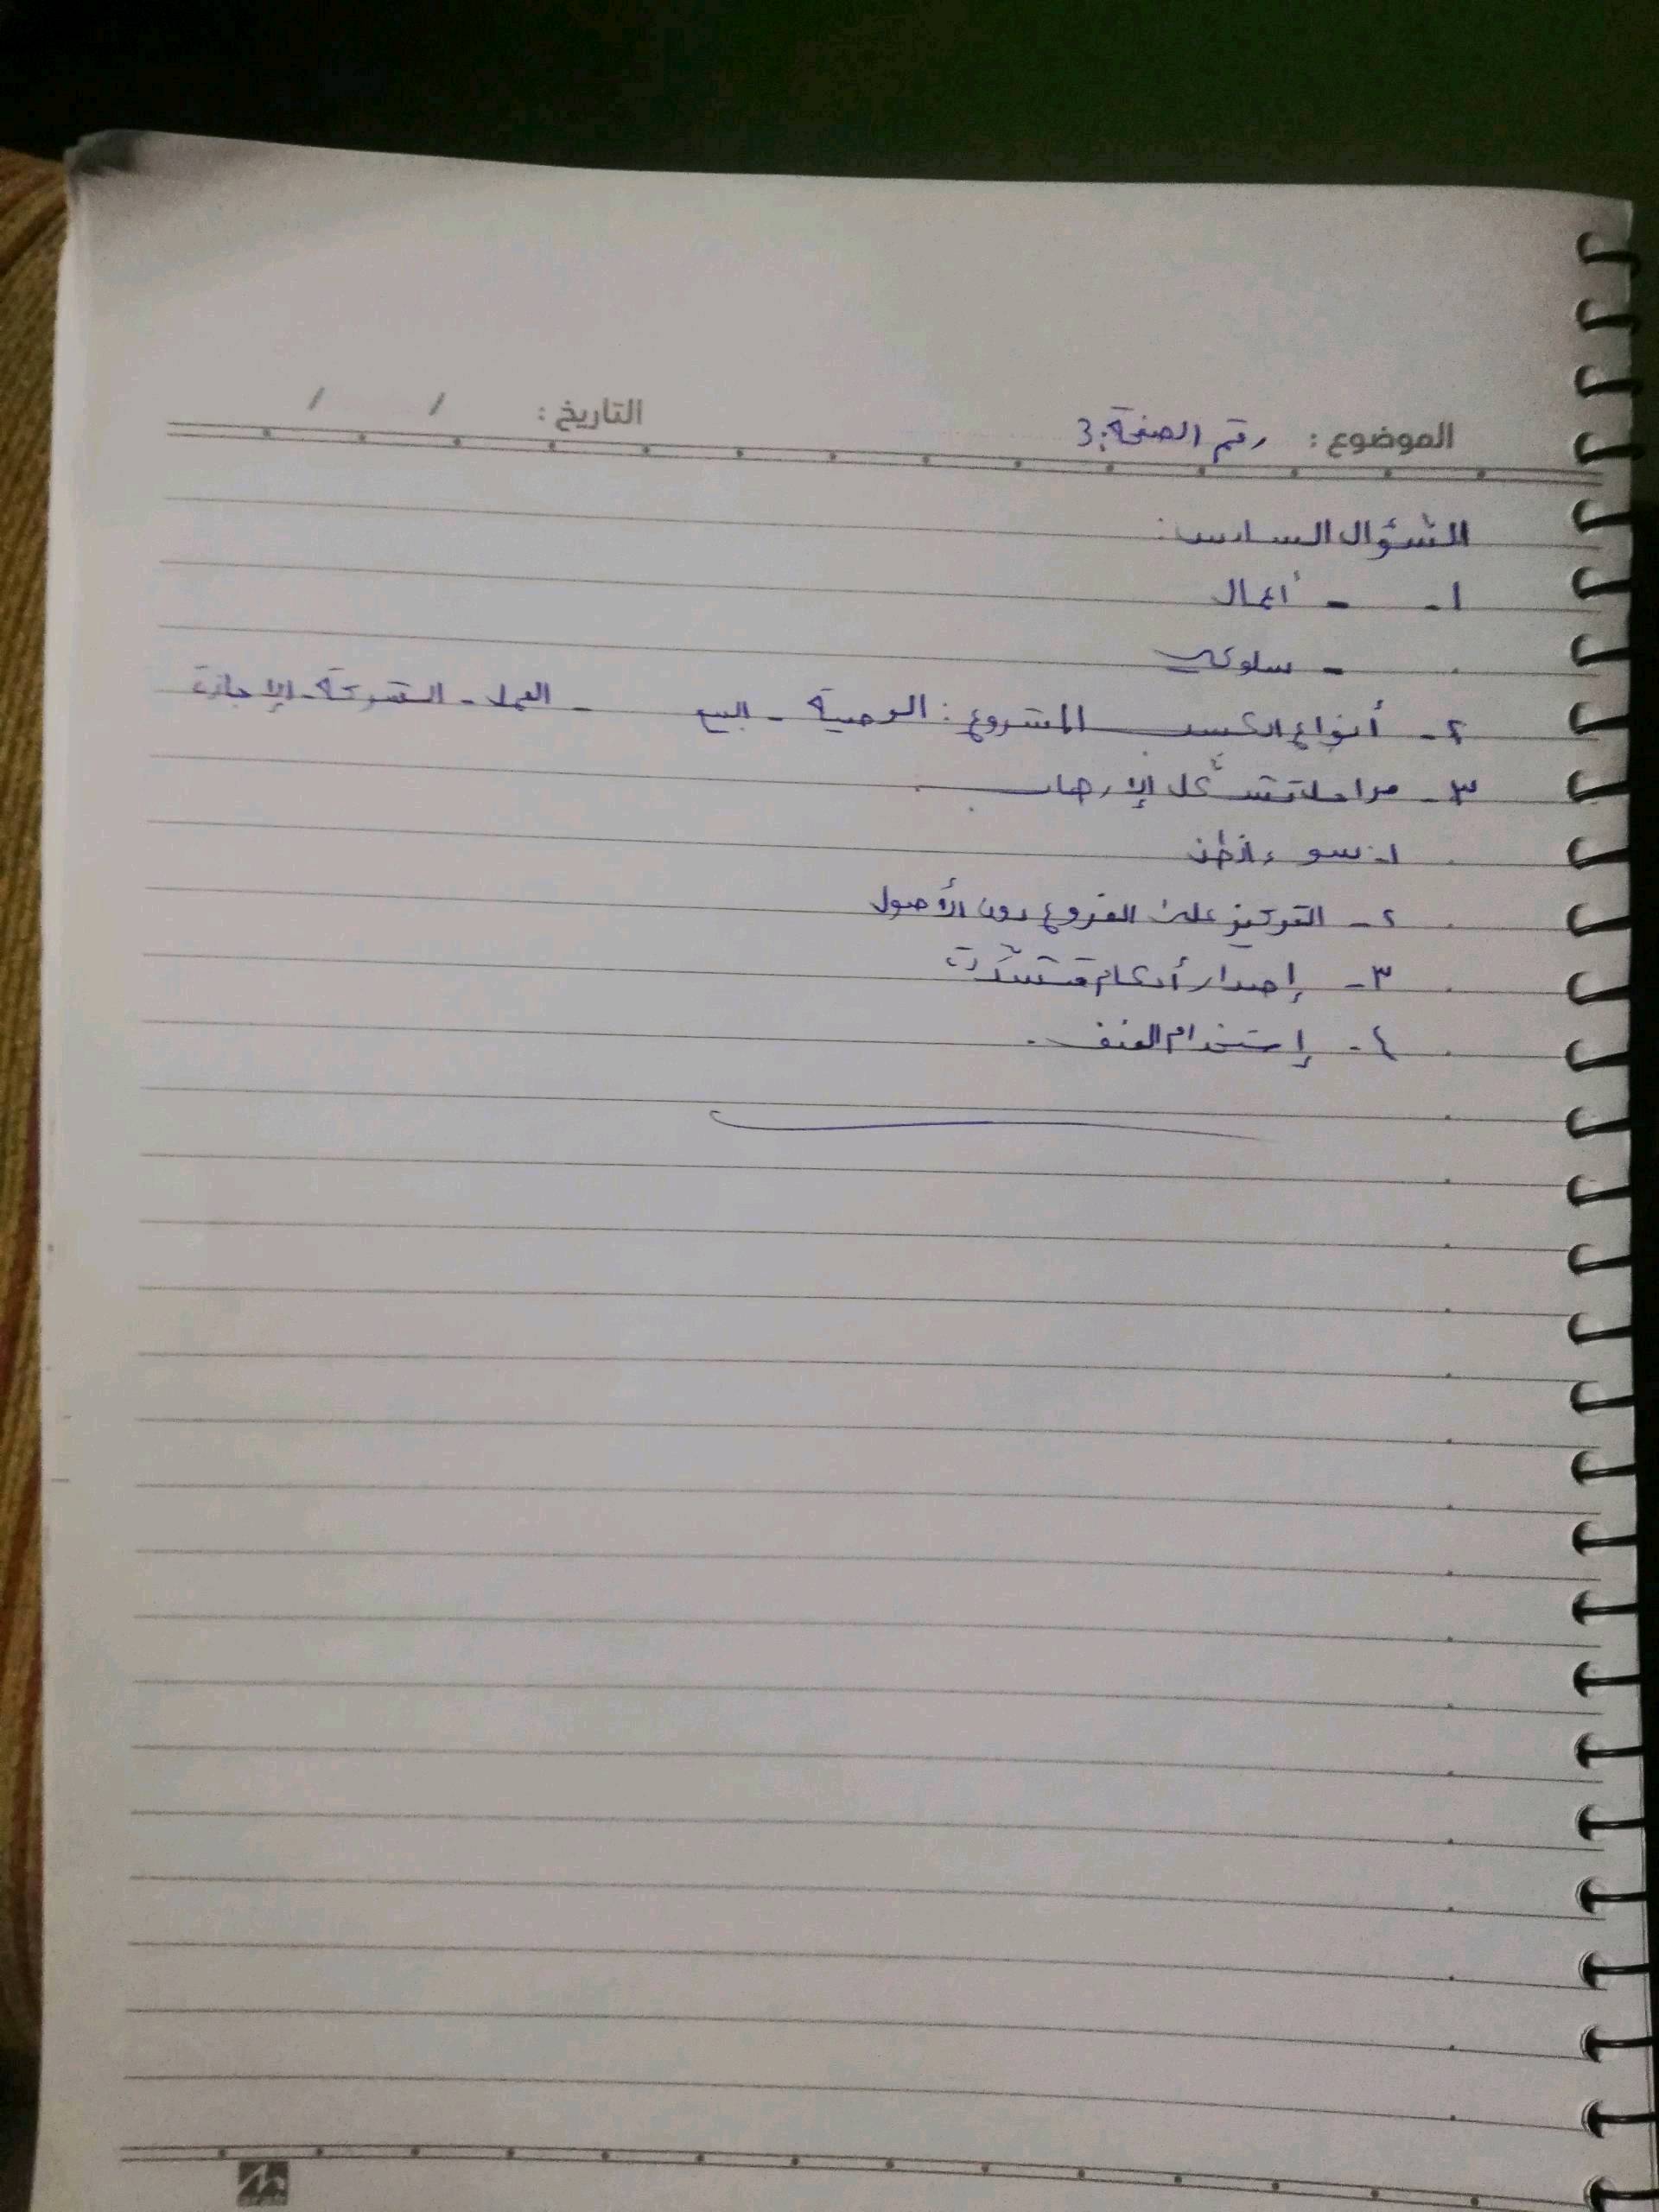 الموضوع : رقم الصفحة: 3 التاريخ : / /
السؤال السادس:
١- - أعمال
- سلوكي
٢- أنواع الكسب المشروع : الوصية - البيع - العمل - الشركة - الإجارة
٣- مراحل تشكّل الإرهاب .
١- سوء الظن
٢- التركيز على الفروع دون الأصول
٣- إصدار أحكام متشدّدة
٤- إستخدام العنف .